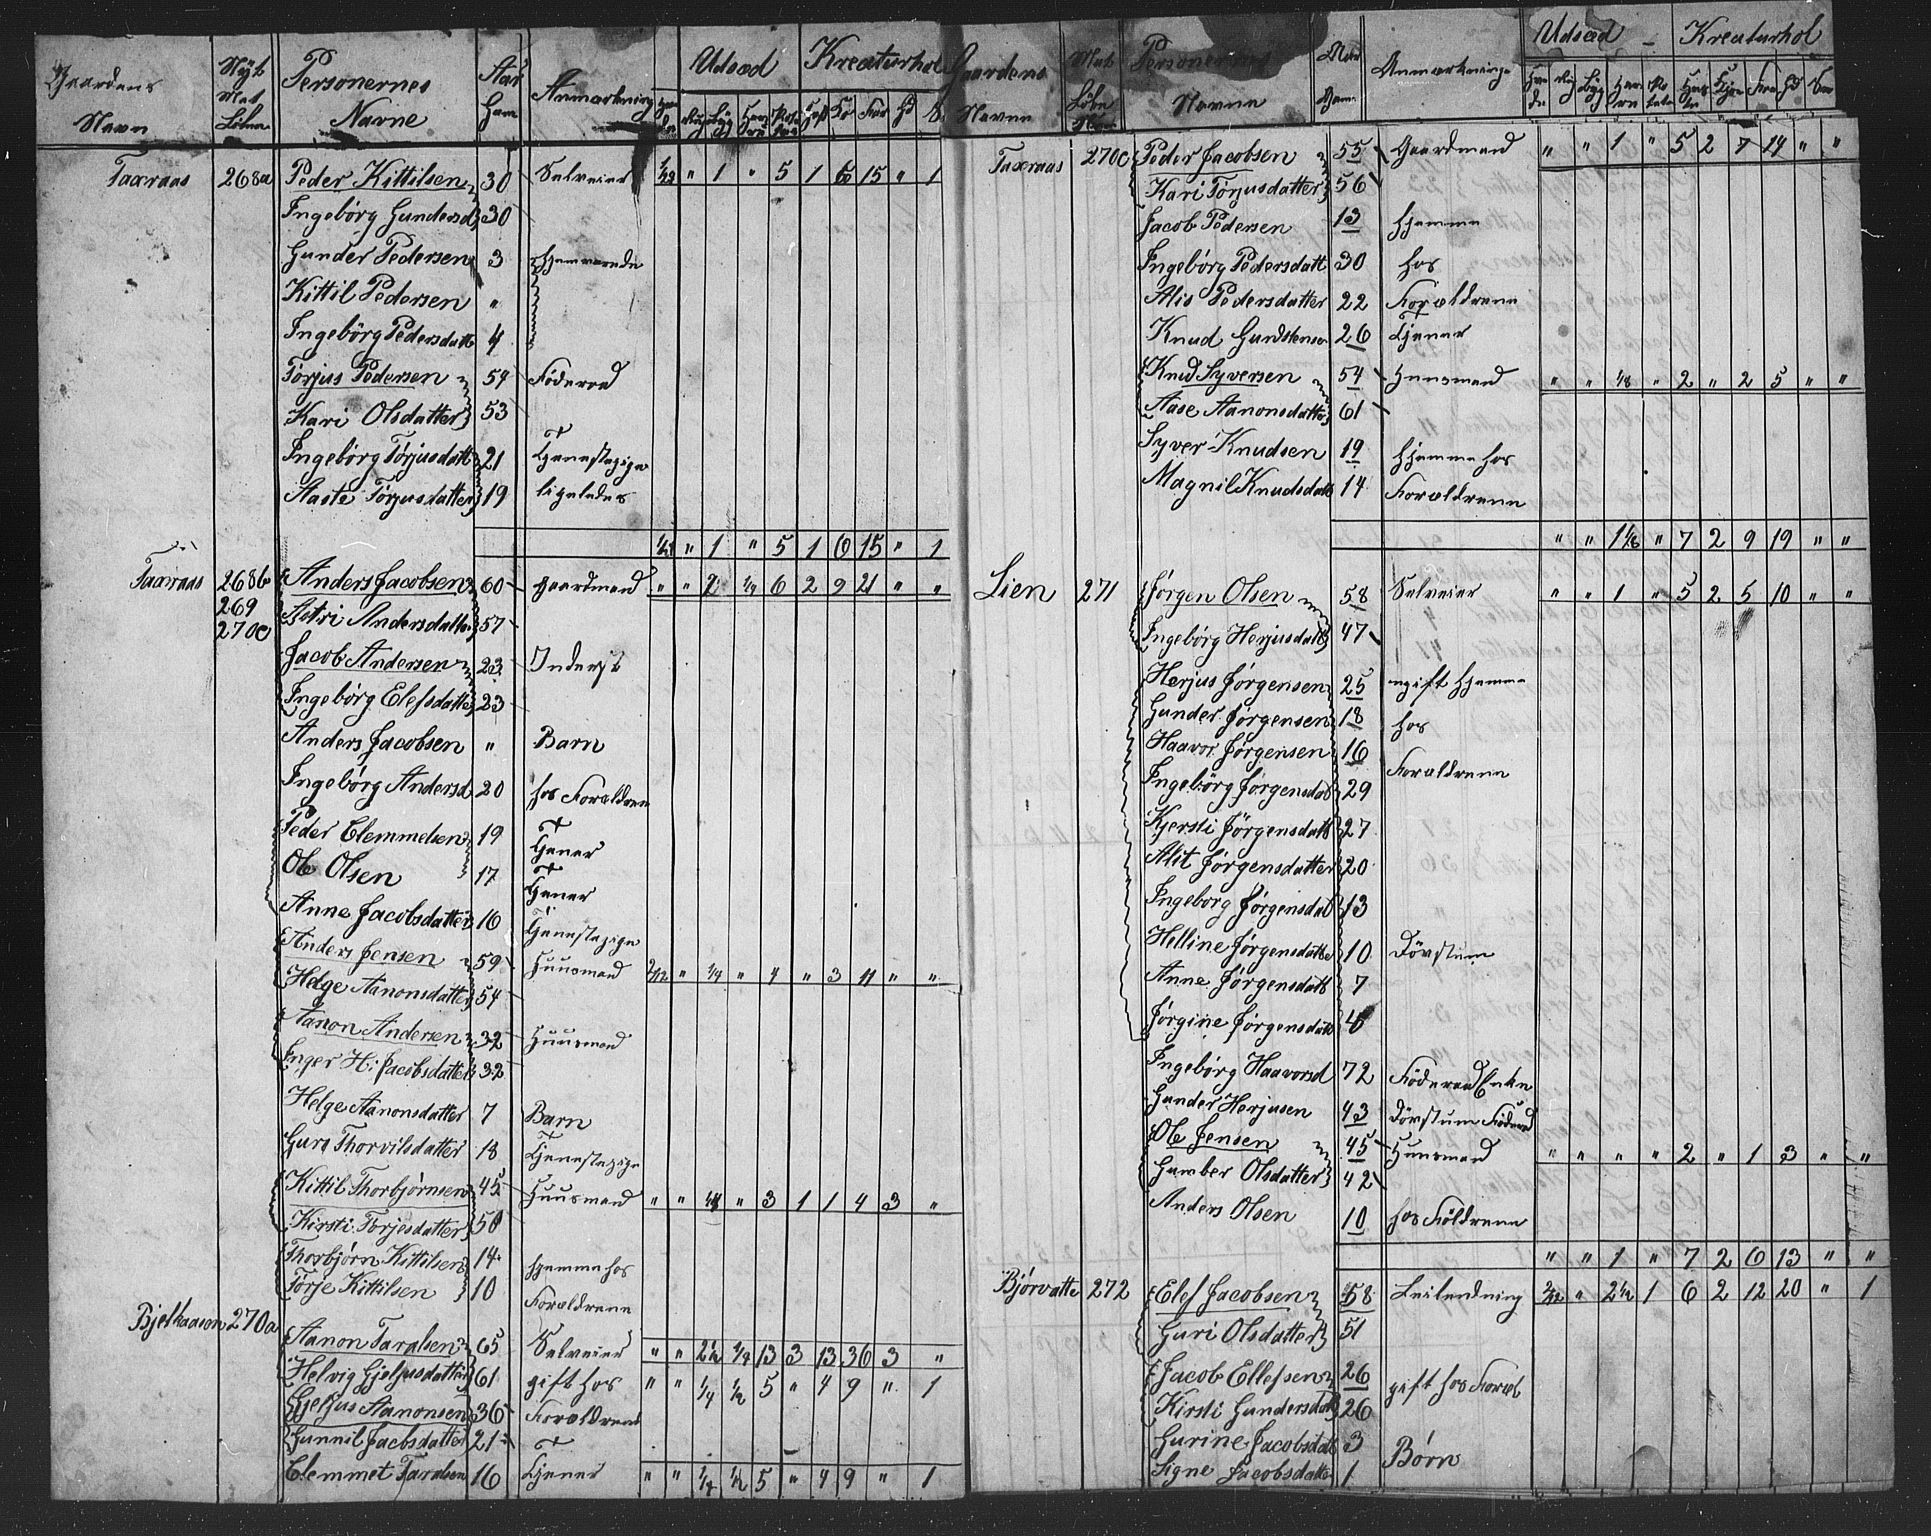 Gaardens Navn | Nyt Mat Löbn | Personernes Navne | Aar Gam | Anmærkning | Udsæd | Kreaturhol
Taxraas 268a Peder Kittilsen 30 Selveier 1/12 " 1 " 5 1 6 15 " 1
Ingebörg Gundersd 30
Gunder Pedersen 3 Hjemværende
Kittil Pedersen "
Ingebörg Pedersdatt 4
Torjus Pedersen 54 Föderaad
Kari Olsdatter 53
Ingebörg Torjusdatt 21 Tjenestepige
Aaste Torjusdatter 19 ligeledes
" 1 " 5 1 6 15 " 1
Taxraas 268b Anders Jacobsen 60 Gaardmand " " 2 1/4 6 2 9 21 " "
269 Astri Andersdatter 57
270c
Jacob Andersen 23 Inderst
Ingebörg Elefsdatter 23
Anders Jacobsen " Barn
Ingebörg Andersd 20 hos Forældrene
Peder Clemmetsen 19 Tjener
Ole Olsen 17 Tjener
Anne Jacobsdatter 16 Tjenestepige
Anders Jensen 59 Huusmand 2/12 " 1/4 " 4 " 3 11 " "
Helge Aanonsdatter 54
Aanon Andersen 32 Huusmand
Inger H: Jacobsdatter 32
Helge Aanonsdatter 7 Barn
Guro Thorvilsdatter 18 Tjenestepige
Kittil Thorbjörnsen 45 Huusmand " " " 3 1 1 4 3 "
Kirsti Torjesdatter 50
Thorbjörn Kittilsen 14 Hjemme hos
Törje Kittilsen 10 Forældrene
Bjelkaasen 270a
Aanon Taralsen 65 Selveier " " 2 1/2 1/4 13 3 13 36 3 "
Helvig Gjeljusdatter 61 gift hos " " 1/4 1/2 5 " 4 9 " 1
Gjeljus Aanonsen 36 Forældrene
Gunnil Jacbsdatter 21
Clemmet Taralsen 16 Tjener " " 1/4 1/2 5 " 4 9 " 1
Gaardens Navn | Mat Löbe | Personernes Navne | Anmærkninge | Udsæd | Kreaturhol
Taxraas 270c Peder Jacobsen 55 Gaardmand " " 1 " 5 2 7 14 " "
Kari Törjusdatter 56
Jacob Pedersen 13 Hjemme
Ingebörg Pedersdatt 30 hos
Alis Pedersdatter 22 Forældrene
Knud Gundstensen 26 Tjener
Knud Syversen 54 Huusmand " " 1/8 " 2 " 2 5 " "
Aase Aanonsdatter 61
Syver Knudsen 19 Hjemme hos
Magnil Knudsdatt 14 Forældrene
" " 1 1/8 " 7 2 9 19 " "
Lien 271 Jörgen Olsen 58 Selveier " " 1 " 5 2 5 10 " "
Ingebörg Herjusdatt 47
Herjus Jörgensen 25 ugift Hjemme
Gunder Jörgensen 18 hos
Haavor Jörgensen 16 Forældrene
Ingebörg Jörgensdat 29
Kjersti Jörgensdatt 27
Alit Jörgensdatter 20
Ingeborg Jörgensdat 13
Helline Jörgensdatte 10 Dövstum
Anne Jörgensdatt 7
Jörgine Jörgensdatt
Ingebörg Haavorsd 72 Föderaad Enke
Gunder Herjusen 43 Dövstum Föderaad
Ole Jensen 45 Huusmand " " " " 2 " 1 3 " "
Gumber Olsdatter 42
Anders Olsen 10 hos Földrene
" " 1 " 7 2 6 13 " "
Björvatte 272 Elef Jacobsen 58 Leilending 2/12 " 2 1/2 1 6 2 12 20 " 1
Guri Olsdatter 51
Jacob Ellefsen 26 gift hos Foræl
Kirsti Gundersdatt 26
Gurine Jacobsdatt 3 Börn
Signe Jacobsdatter 1